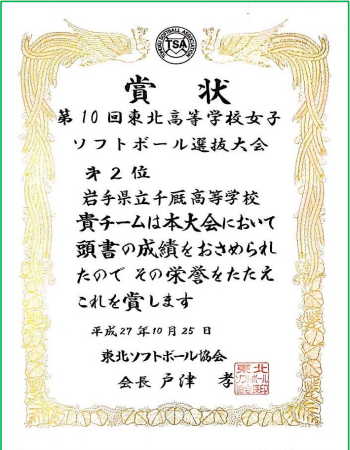 TSA
賞状
第10回東北高等学校女子
ソフトボール選抜大会
才2位
岩手県立千厩高等学校
貴チームは本大会において
頭書の成績をおさめられ
たので その栄誉をたたえ
これを賞します
平成27年10月25日
東北ソフトボール協会
会長 戸津 孝